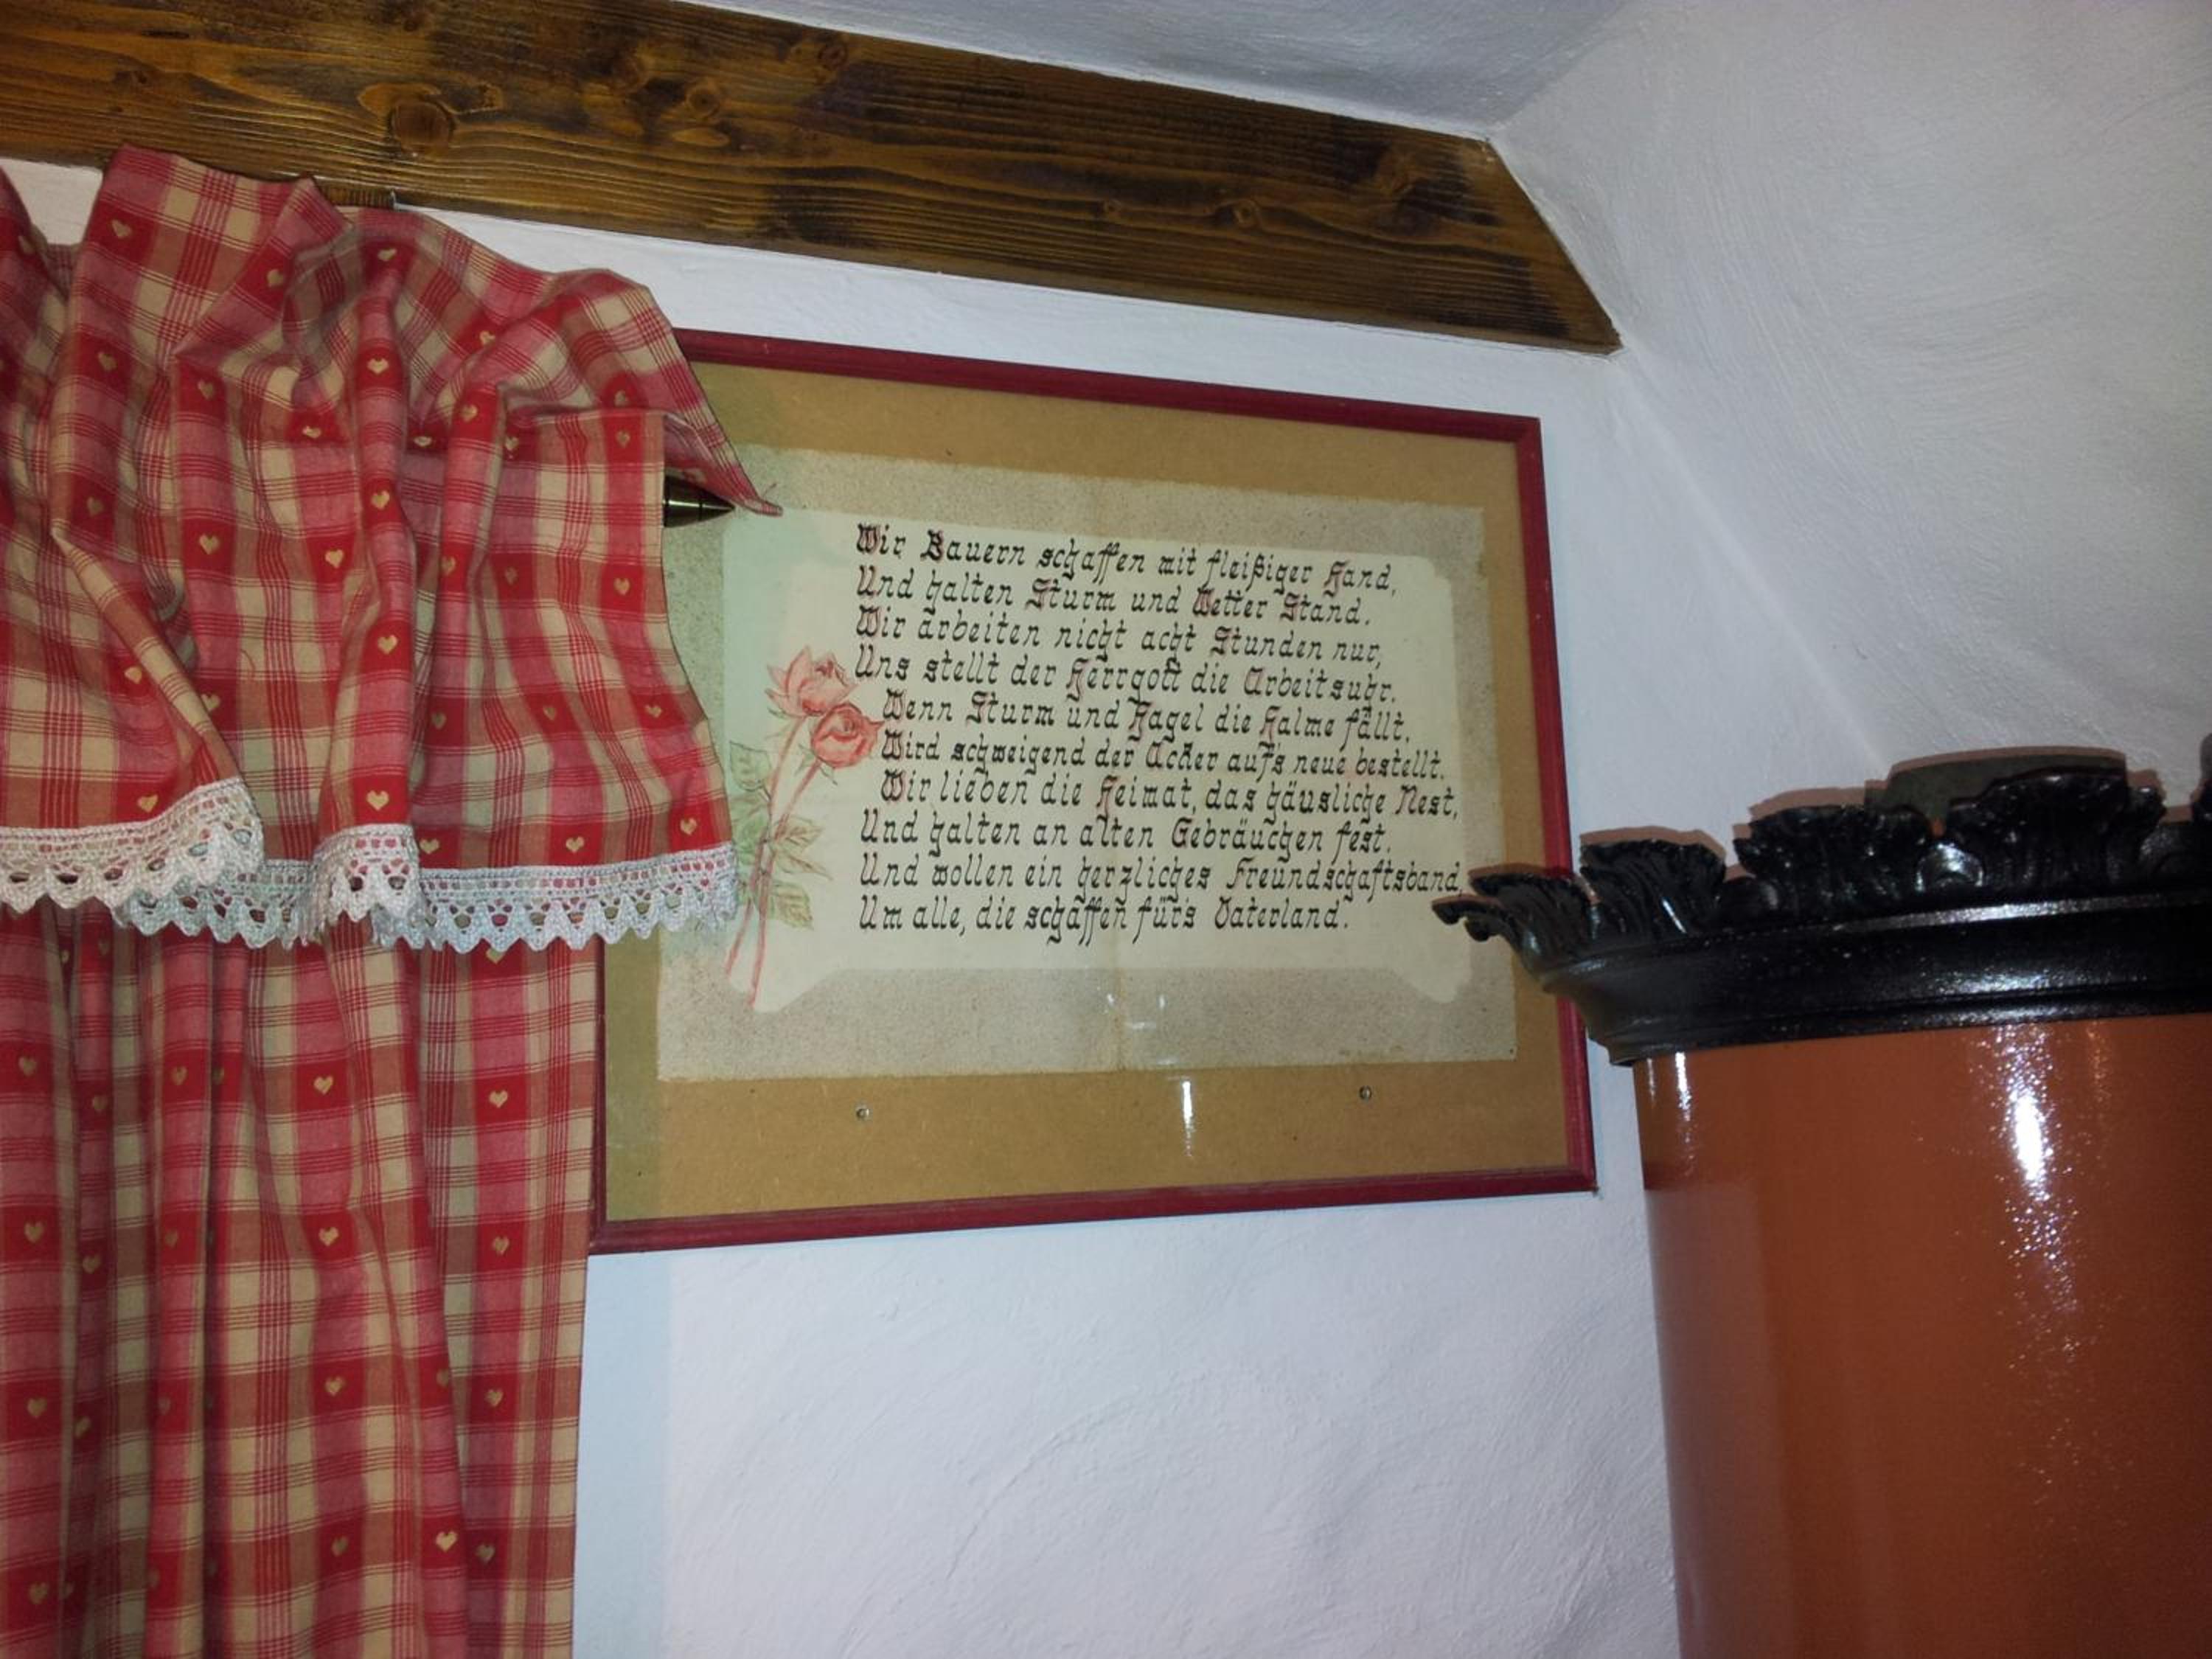 Wir Bauern schaffen mit fleißiger Hand,
Und halten Sturm und Wetter Stand.
Wir arbeiten nicht acht Stunden nur,
Uns stellt der Herrgott die Arbeitsuhr.
Wenn Sturm und Hagel die Halme fällt,
Wird schweigend der Acker auf's neue bestellt.
Wir lieben die Heimat, das häusliche Nest,
Und halten an alten Gebräuchen fest.
Und wollen ein herzliches Freundschaftsband,
Um alle, die schaffen für's Vaterland.